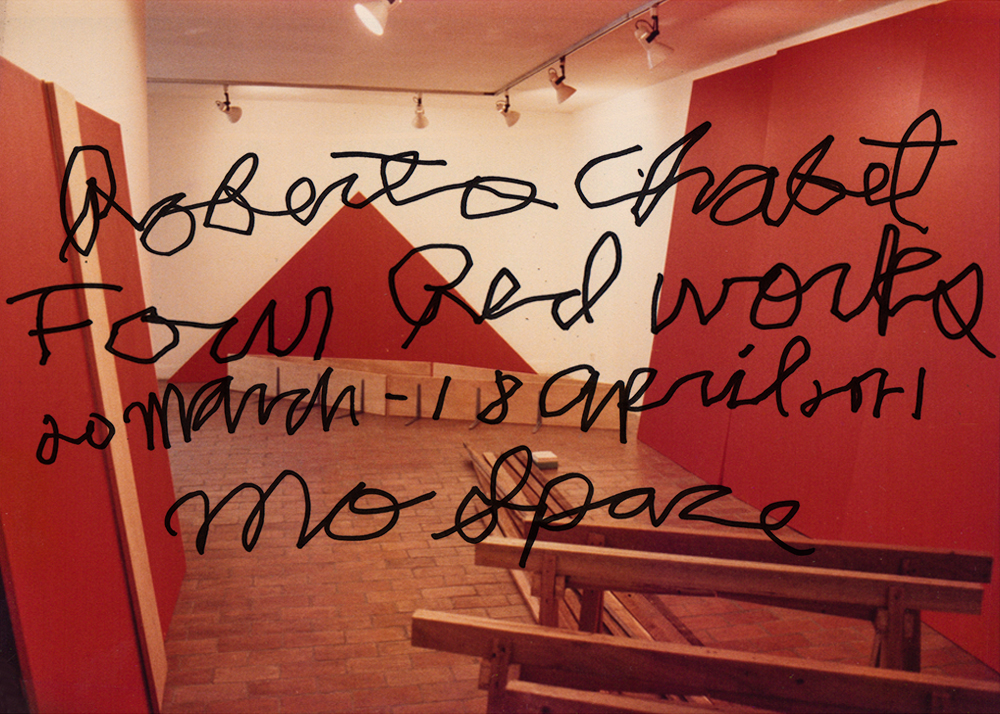 Roberto Chabet
Four Red works
20 march - 18 april 2011
MO Space